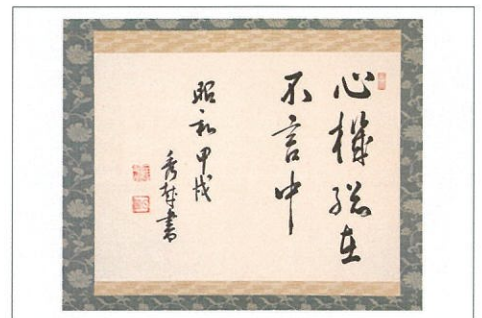 心機総在
不言中
昭和甲戌
秀哉書